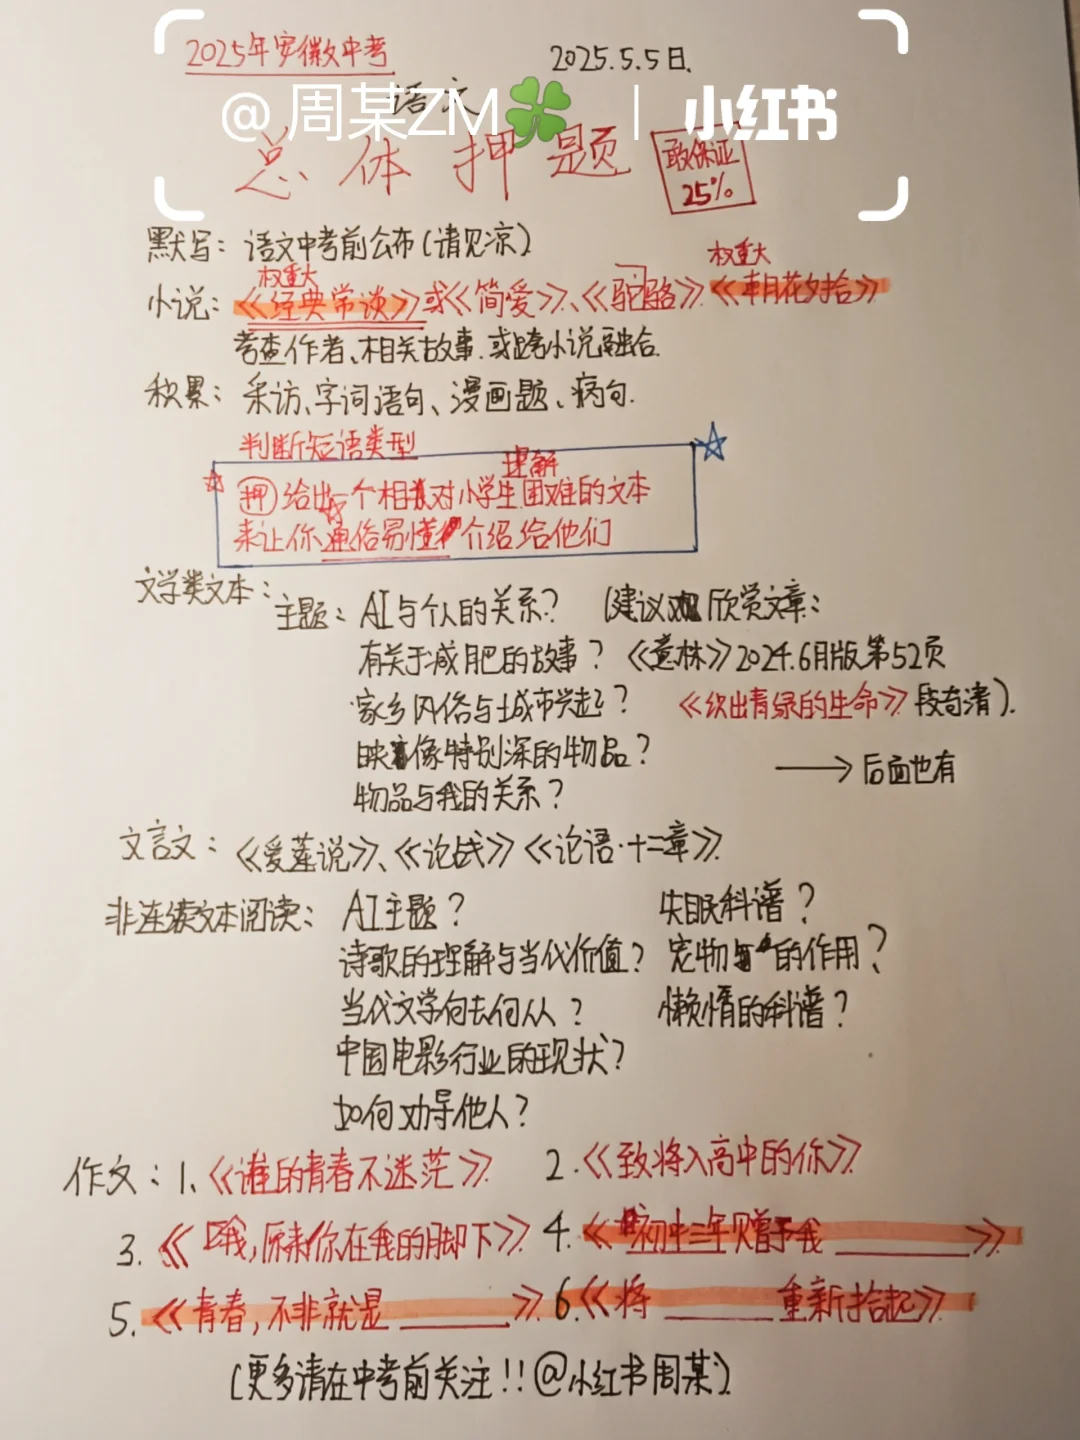 2025年安徽中考
2025.5.5日.
语文
@周某ZM🍀 | 小红书
总体押题
敢保证
25%
默写：语文中考前公布(请见凉)
权重大
权重大
小说：《经典常谈》或《简爱》、《骆驼》.《朝花夕拾》
考查作者、相关故事.或跨小说融合.
积累：采访、字词语句、漫画题、病句.
判断短语类型
理解
押给出一个相对小学生困难的文本
来让你通俗易懂介绍给他们
文学类文本：
主题：AI与个人的关系? (建议观欣赏文章：
有关于减肥的故事？《意林》2024.6月版第52页
家乡风俗与城市兴起？《织出青绿的生命》段奇清).
映像特别深的物品？
→后面也有
物品与我的关系？
文言文：《爱莲说》、《论战》《论语·十二章》.
非连续文本阅读：AI主题？ 失眠科谱？
诗歌的理解与当代价值？ 宠物的作用？
当代文学何去何从？ 懒惰的科谱？
中国电影行业的现状？
如何劝导他人？
作文：1.《谁的青春不迷茫》. 2.《致将入高中的你》
3.《哦,原来你在我的脚下》 4.《初中三年赠予我______》
5.《青春,不非就是______》. 6.《将______重新拾起》
(更多请在中考前关注!!@小红书周某)